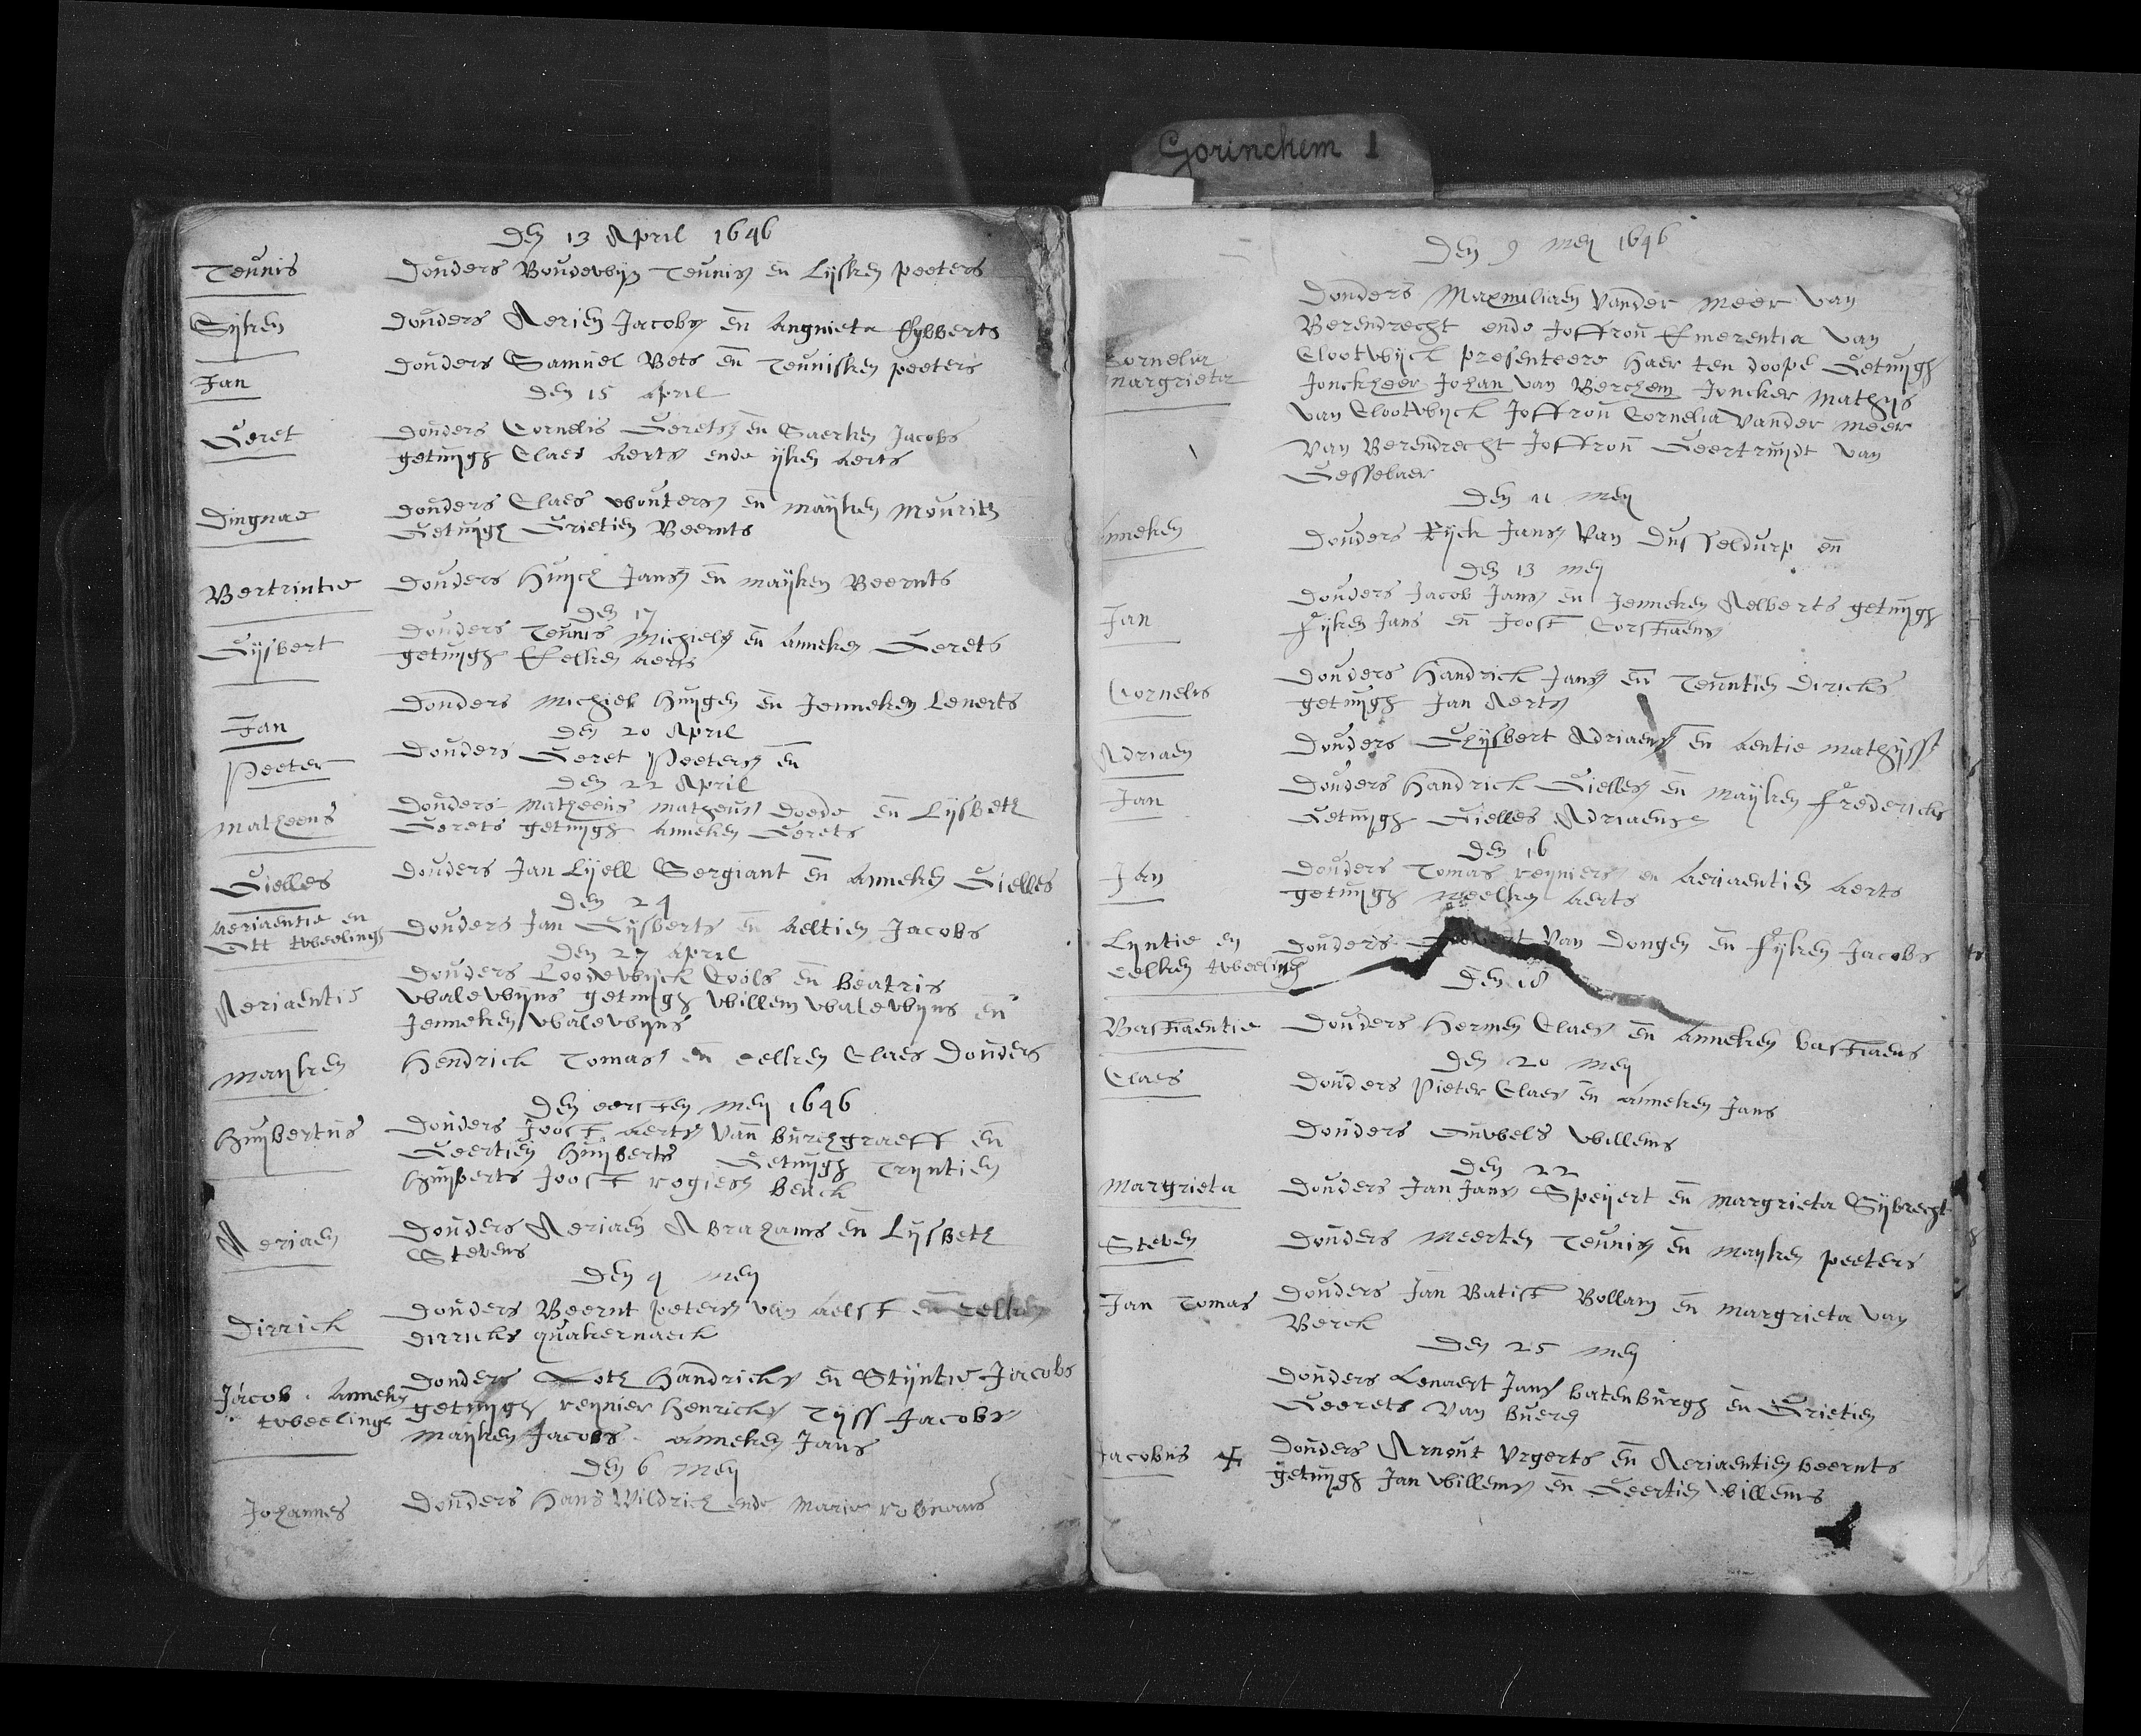 Gorinchem 1
Den 13 April 1646
Teunis Douders Boudewijn Teunisz en Lijsken peeters
Sijken Douders Aerien Jacobsz en Angnieta Eybberts
Jan Douders Samuel Bets en Teunisken peeters
Den 15 April
Geret Douders Cornelis Geretsz en Saerken Jacobs
getuijgh Claes Aertsz ende ijken Aerts
Dingnae Douders Claes woutersz en maijken Mourits
Getuijgh Grietien Beernts
Bertrintie Douders Huijch Jansz en maijken Beernts
Den 17
Gijsbert Douders Teunis Michielsz en Anneken Gerets
getuijgh Eelken Aerts
Jan Douders Michiel Huijgen en Jenneken Lenerts
Den 20 April
Peeter Douders Geret Peetersz en
Den 22 April
Matheeus Douders Matheeus Matheusz Doede en Lijsbeth
Gerets getuijgh Anneken Gerets
Gielles Douders Jan Lijell Sergiant en Anneken Gielles
Den 24
Aeriaentie en Douders Jan Gijsbertsz en Aeltien Jacobs
Ott tweelingh
Den 27 April
Aeriaentie Douders Loodewijck Cools en Beatris
Walewijns getuijgh Willem Walewijns en
Jenneken Walewijns
Mayken Hendrick Tomasz en eelken Claes Douders
Den eersten Meij 1646
Huijbertus Douders Joost Aertsz Van Burchgraeff en
Geertien Huijberts Getuijgh Tryntien
Huijberts Joost rogiersz Beuck
Aeriaen Douders Aeriaen Abrahams en Lijsbeth
Stevens
Den 4 Meij
Dirrick Douders Beernt petersz van Aelst en eelken
Dirricks quakernaeck
Jacob Anneken Douders Loth Handricksz en Stijntie Jacobs
tweelingh getuijgh reijnier Henricksz Tijss Jacobsz
Maijken Jacobs Anneken Jans
Den 6 Meij
Johannes Douders Hans Wildrich ende Maria
Den 9 Meij 1646
Douders Maxmiliaen Vander Meer van
Berendrecht ende Joffrou Emerentia van
Cornelia Clootwijck presenteere Haer ten doope Getuijgh
margrieta Jonckheer Johan van Berchem Joncker Mathijs
van Clootwijck Joffrou Cornelia Vander Meer
Van Berendrecht Joffrou Geertruijdt van
Gesselaer
Den 11 Meij
Anneken Douders Rijck Jansz Van Dusseldurp en
Den 13 Meij
Jan Douders Jacob Jansz en Jenneken Aelberts getuijgh
Fijken Jans en Joost Corstiaensz
Cornelis Douders Handrick Jansz en Teuntien Dircks
getuijgh Jan Aertsz
Adriaen Douders Ghijsbert Adriaensz en Aentie Mathijss
Jan Douders Handrick Giellesz en Maijken Fredericks
Getuijgh Gielles Adriaensz
Den 16
Jan Douders Tomas reyniersz en Aeriaentien Aerts
getuijgh neelken Aerts
Lyntie en Douders Govert Van Dongen en Fijken Jacobs
eelken tweelingh
Den 18
Bastiaentie Douders Hermen Claesz en Anneken Bastiaens
Den 20 Meij
Claes Douders Pieter Claesz en Anneken Jans
Douders Willems
Den 22
Margrieta Douders Jan Jansz Speijert en Margrieta Sijbrecht
Steven Douders Meerten Teunisz en Mayken peeters
Jan Tomas Douders Jan Batist Bollaen en Margrieta van
Berck
Den 25 Meij
Douders Lenaert Jansz Batenburgh en Grietien
Geerets Van Buere
Jacobus Douders Arnout Vrgerts en Aeriaentien Beernts
getuijgh Jan Willemsz en Geertien Willems